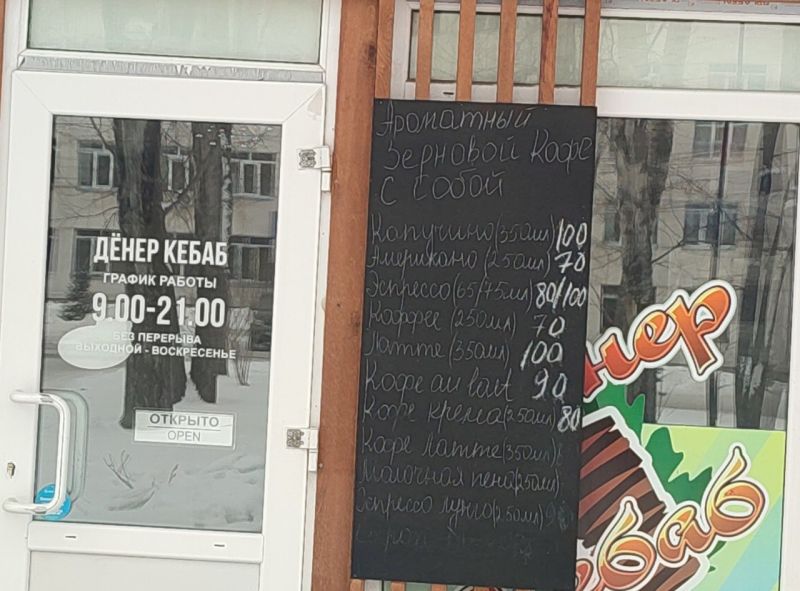 ДЁНЕР КЕБАБ
ГРАФИК РАБОТЫ
9.00-21.00
БЕЗ ПЕРЕРЫВА
ВЫХОДНОЙ - ВОСКРЕСЕНЬЕ
ОТКРЫТО
OPEN
Ароматный
Зерновой Кофе
с собой
Капучино (350мл) 100
Американо (250мл) 70
Эспрессо (65/75мл) 80/100
Каффее (250мл) 70
Латте (350мл) 100
Кофе au lait 90
Кофе крема (250мл) 80
Кофе Латте (350мл)
Молочная пена (250мл)
Эспрессо лунго (250мл)
нер
ебаб